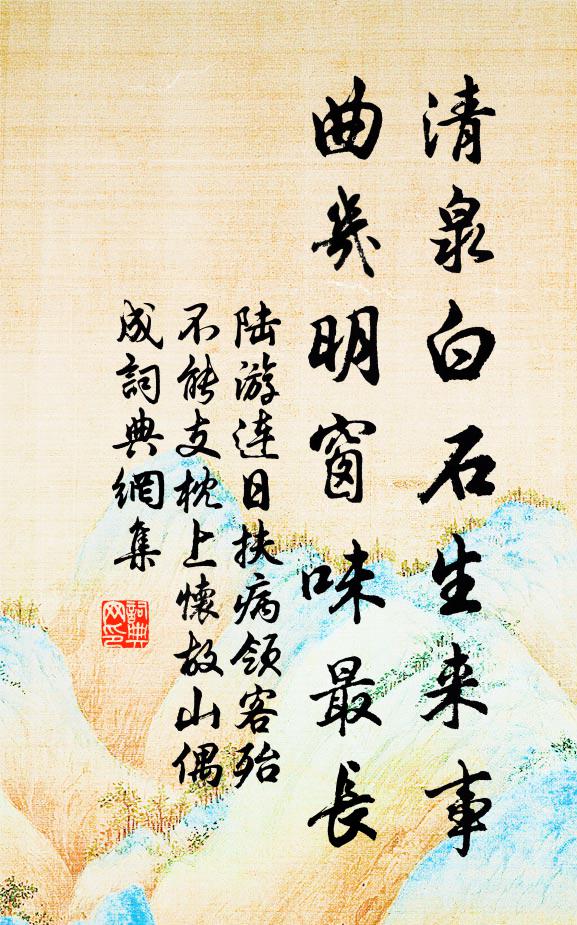 清泉白石生来事
曲几明窗味最長
陆游连日扶病领客殆
不能支枕上懷故山偶
成詞典網集
詞典
网印